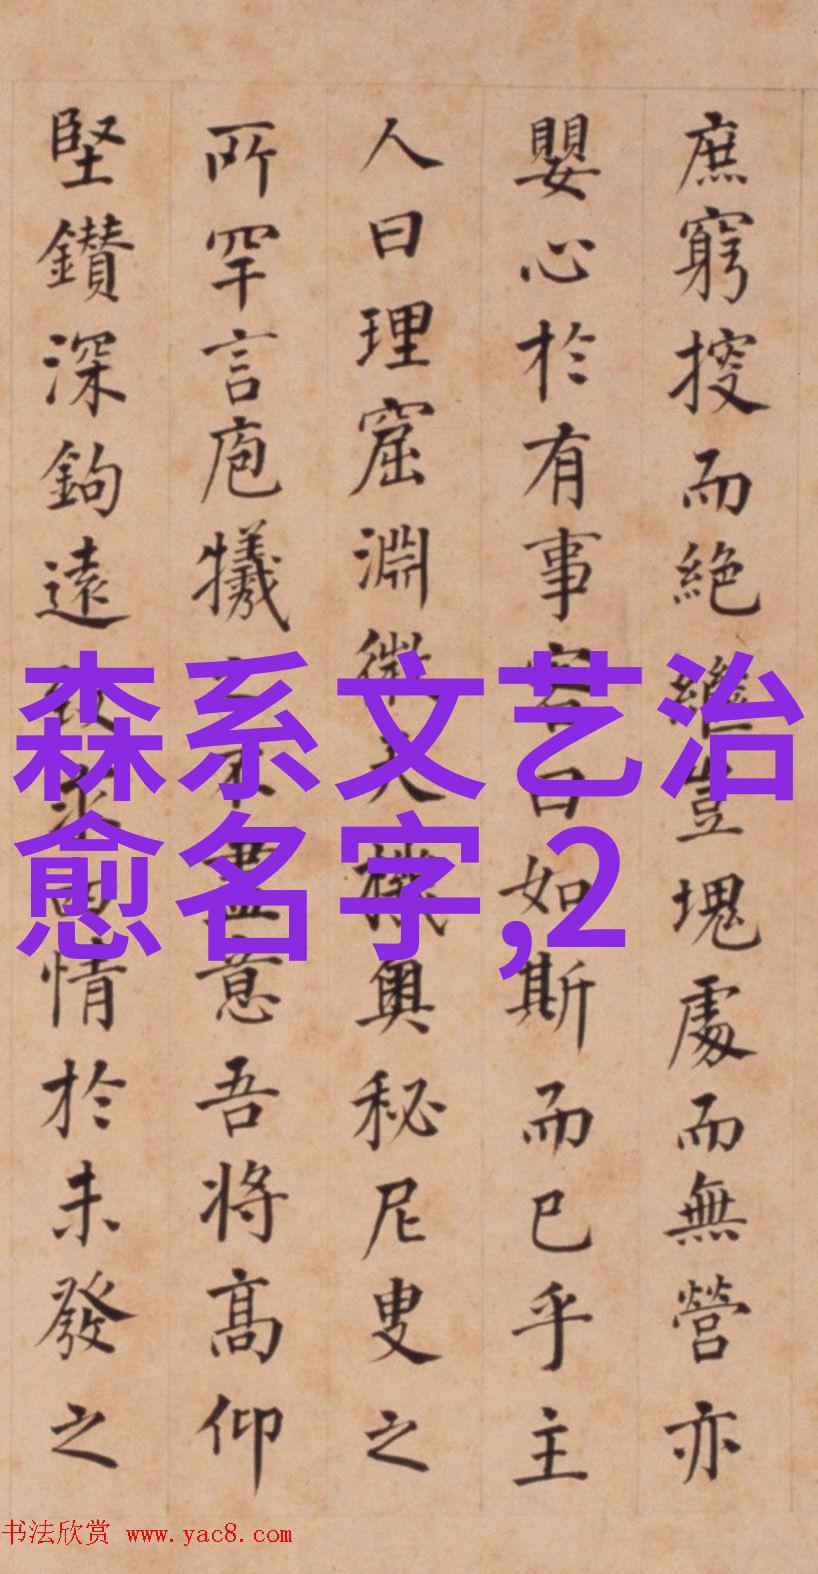 庶窮而絕繼豈塊處而無營亦
嬰心於有事客曰如斯而已乎主
人曰理窟淵微天機奧秘尼叟之
所罕言庖犧不盡意吾将高仰
堅鑽深鉤遠情於未發之
森系文艺治
愈名字,2
书法欣赏 www.yac8.com